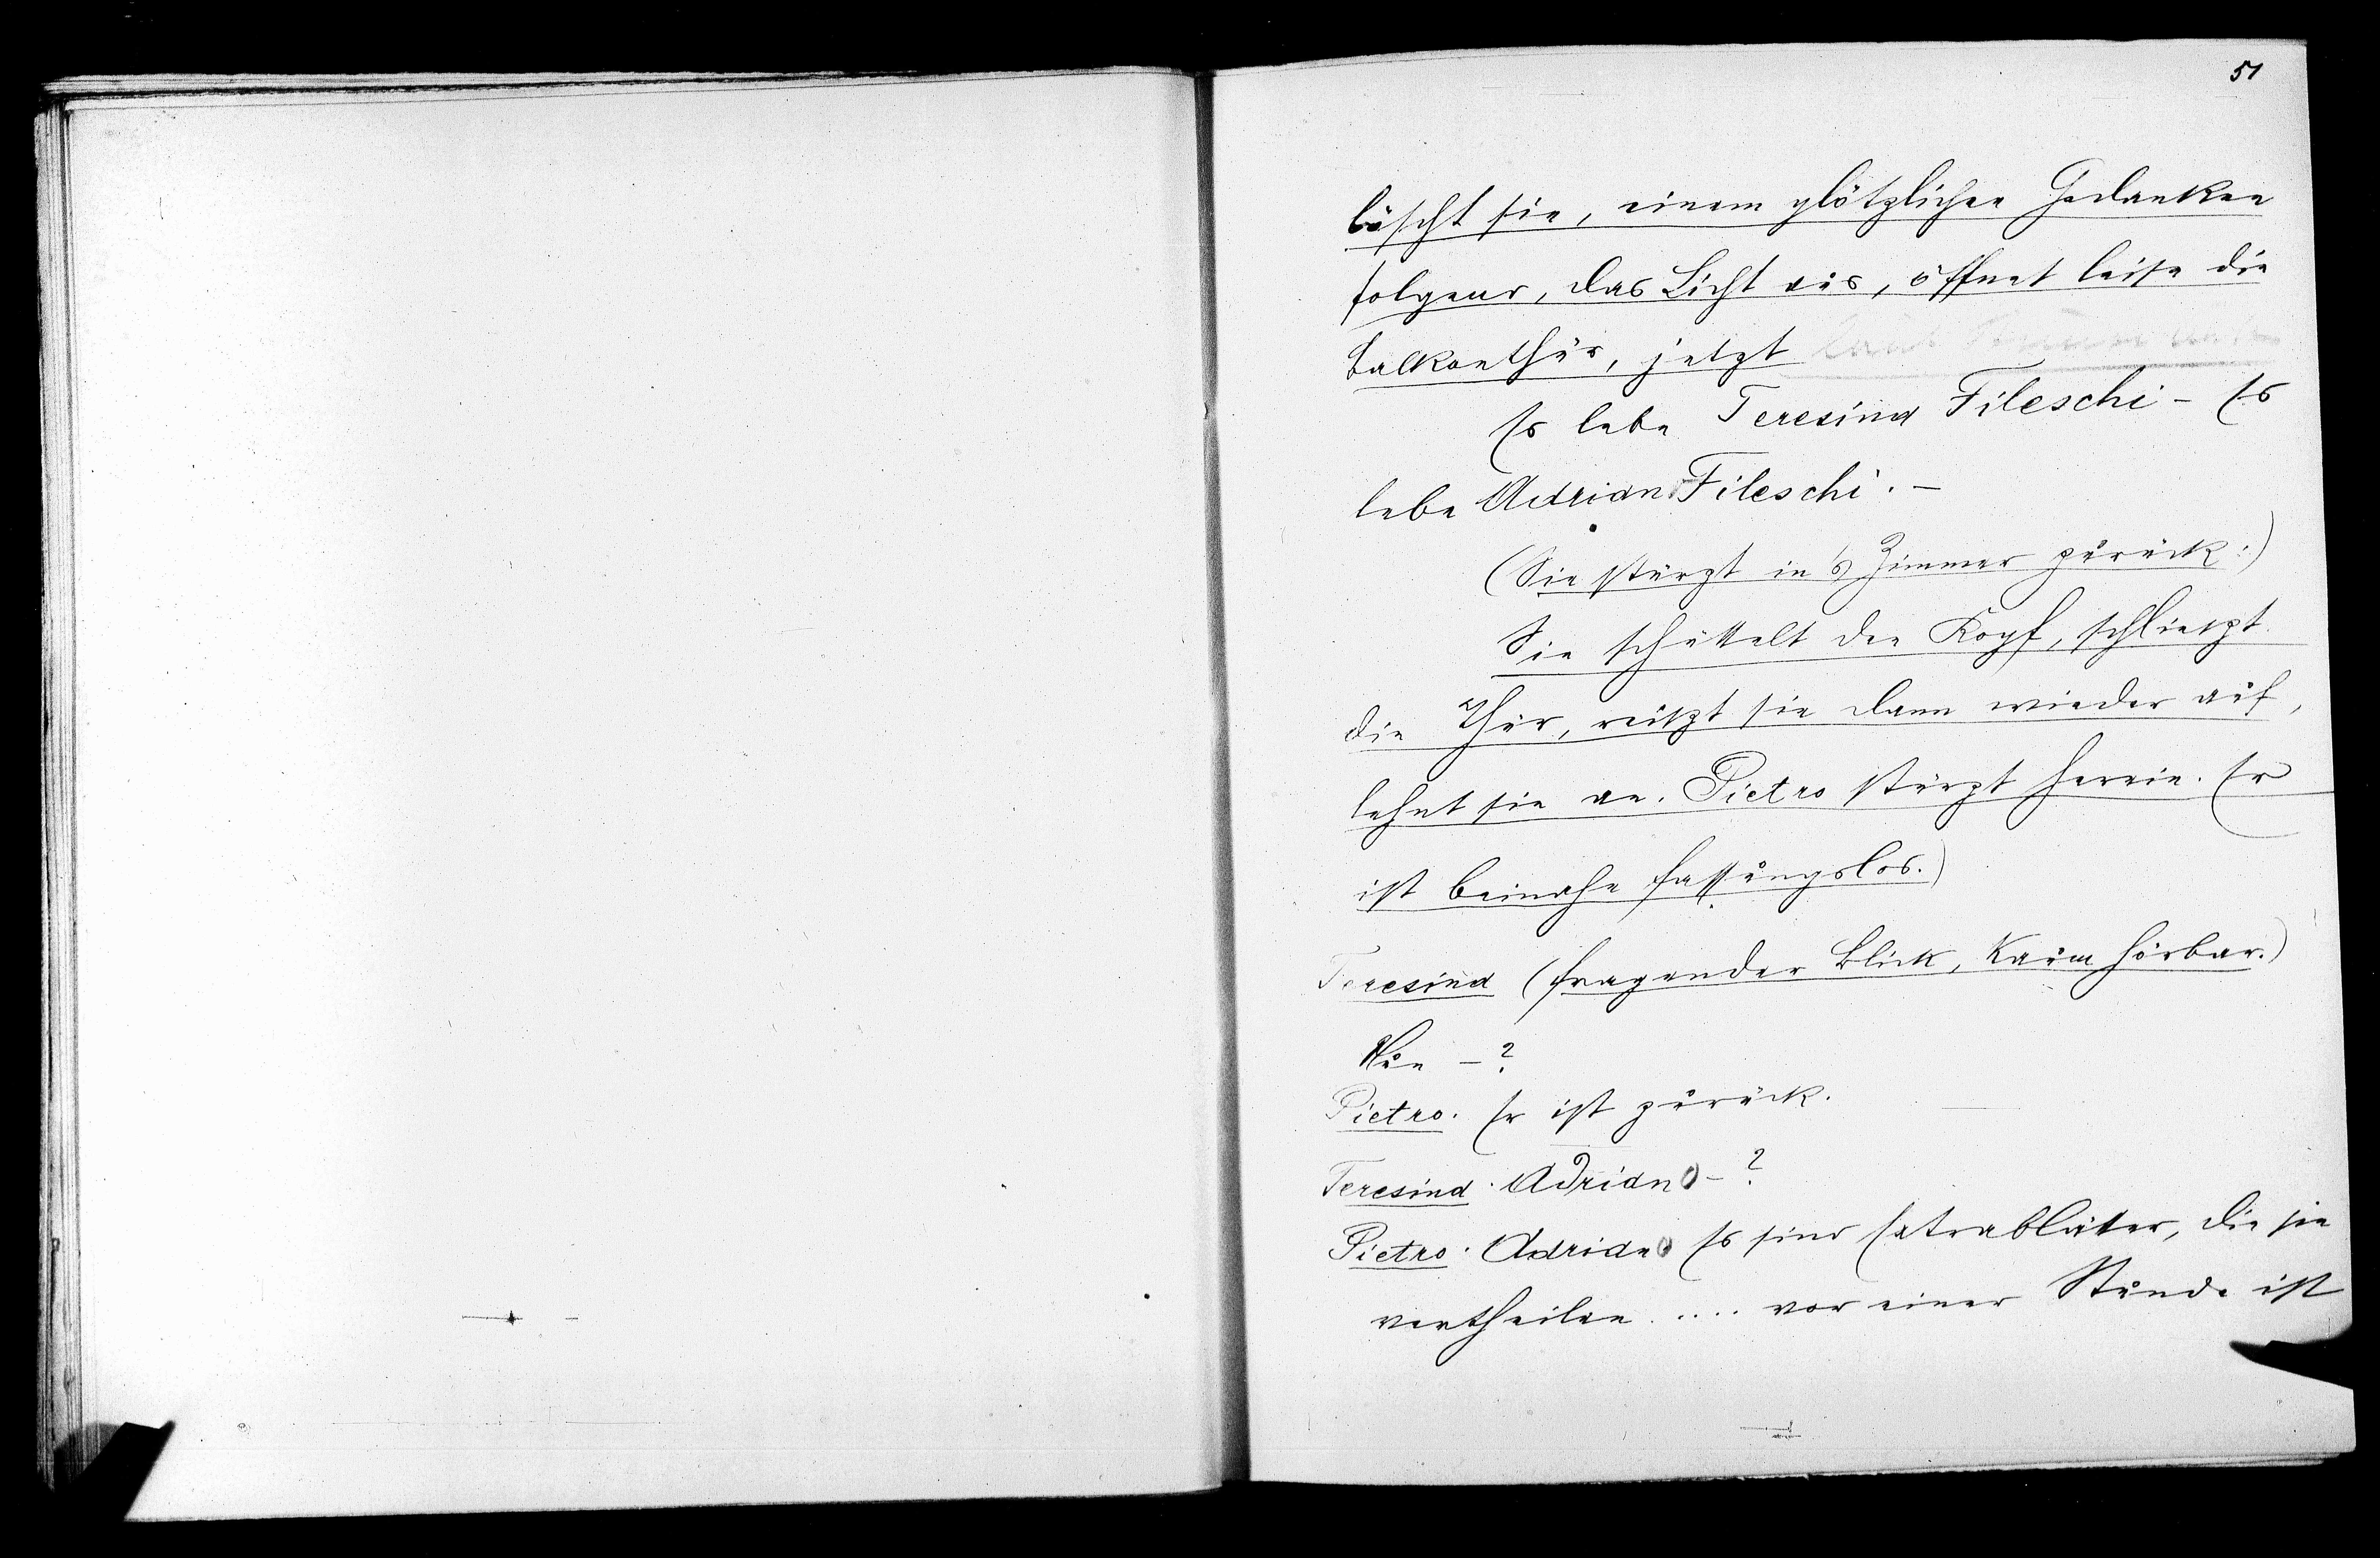 51
löscht sie, einem plötzlichen Gedanken
folgend, das Licht aus, öffnet leise die
Balkonthür, jetzt
Es lebe Teresina Fileschi - Es
lebe Adrian Fileschi. -
(Sie stürzt in's Zimmer zurück:)
Sie schüttelt den Kopf, schließt
die Thür, reißt sie dann wieder auf,
lehnt sie an. Pietro stürzt herein. Er
ist beinahe fassungslos.)
Teresina (fragender Blick, kaum hörbar.)
Nun - ?
Pietro. Er ist zurück.
Teresina. Adriano - ?
Pietro. Adriano Es sind Extrablätter, die sie
vertheilen .... vor einer Stunde ist